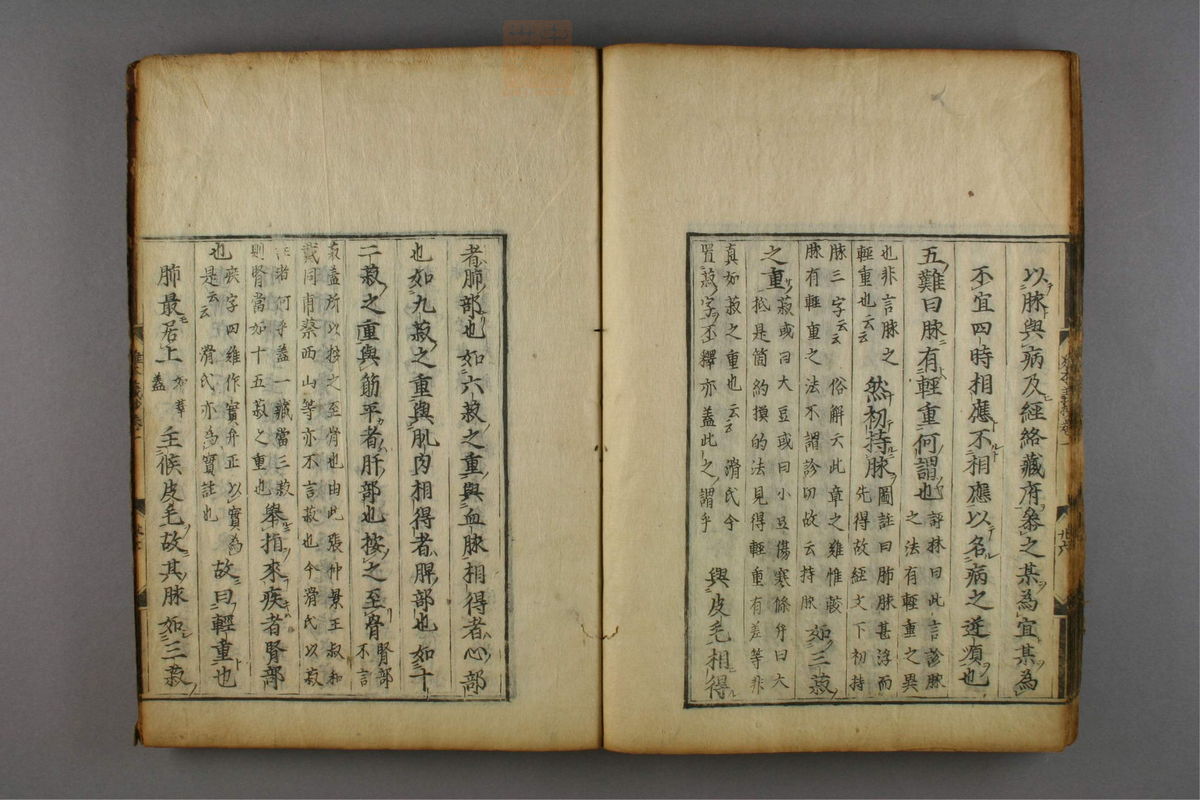 以脉與病及經絡藏府參之某為宜某為
不宜四時相應不相應以名病之逆順也
五難曰脉有輕重何謂也 評林曰此言診脉之法有輕重之異
也非言脉之輕重也云云 然初持脉 圖註曰肺脉甚浮而先得故經文下初持
脉三字云云 俗解六此章之雖惟蔽脉有輕重之法不謂診切故云持脉 如三菽
之重 菽或曰大豆或曰小豆傷寒條弁曰大抵是箇約摸的法見得輕重有差等非
真如菽之重也云云 滑氏今置菽字不釋亦蓋此之謂乎 與皮毛相得
者肺部也如六菽之重與血脉相得者心部
也如九菽之重與肌肉相得者脾部也如十
二菽之重與筋平者肝部也按之至骨 腎部不言
菽蓋所以按之至骨也由此張仲景王叔和戴同甫蔡西山等亦不言菽也今滑氏以菽
言者何乎蓋一臟當三菽則腎當如十五菽之重也 舉指來疾者腎部
也 疾字四難作實弁正以實為是云云 滑氏亦為實註也 故曰輕重也
肺最居上 如華蓋 主候皮毛故其脉如三菽